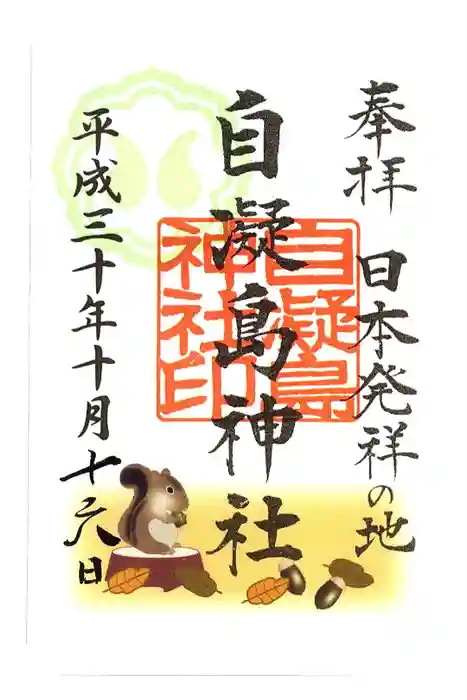 奉拝 日本発祥の地
自凝島神社
自凝島神社印
平成三十年十月十六日